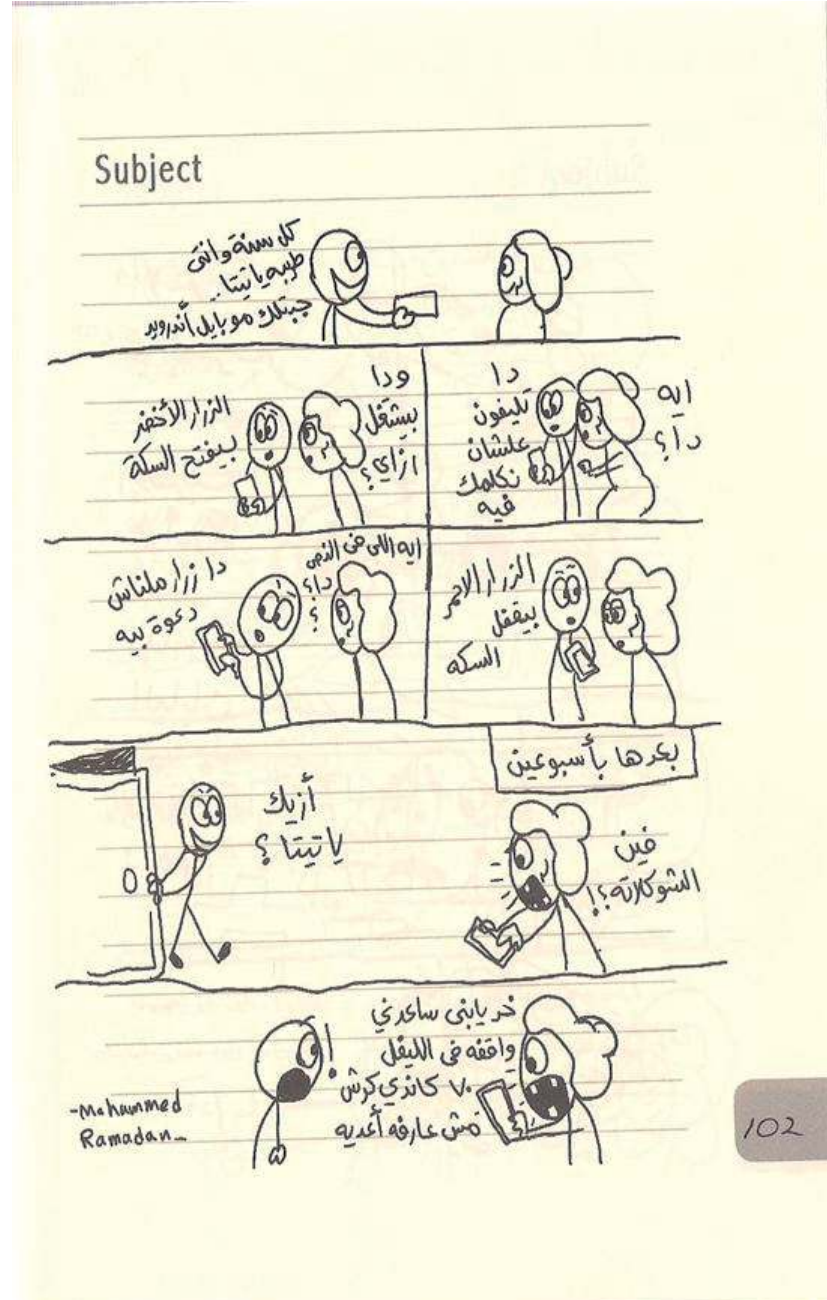 Subject
كل سنة وانتى
طيبه ياتيتا..
جبتلك موبايل أندرويد
ايه
دا؟
دا
تليفون
علشان
نكلمك
فيه
ودا
بيشتغل
ازاي؟
الزرار الأخضر
بيفتح السكة
الزرار الاحمر
بيقفل
السكه
ايه اللى فى النص
دا؟
؟
دا زرار ملناش
دعوة بيه
بعدها بأسبوعين
فين
الشوكلاته؟!
أزيك
ياتيتا؟
خد يابنى ساعدني
واقفه فى الليفل
٧٠ كاندي كرش
مش عارفه أعديه
!
-Mohammed
Ramadan-
102